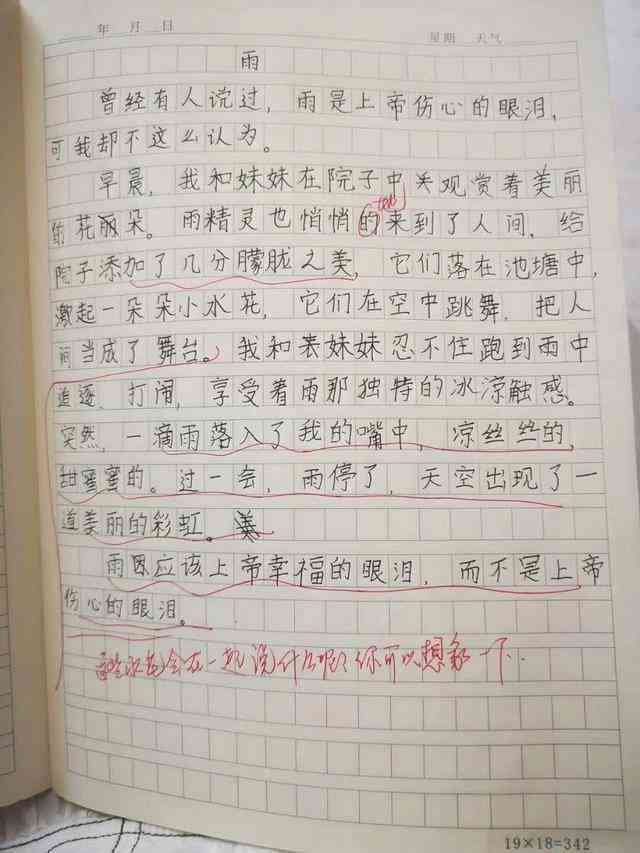 年 月 日 星期 天气
雨
曾经有人说过，雨是上帝伤心的眼泪，
可我却不这么认为。
早晨，我和妹妹在院子中关观赏着美丽
的花丽朵。雨精灵也悄悄的来到了人间，给
院子添加了几分朦胧之美，它们落在池塘中，
激起一朵朵小水花，它们在空中跳舞，把人
间当成了舞台。我和表妹妹忍不住跑到雨中
追逐，打闹，享受着雨那独特的冰凉触感。
突然，一滴雨落入了我的嘴中，凉丝丝的，
甜蜜蜜的。过一会，雨停了，天空出现了一
道美丽的彩虹。
雨应该上帝幸福的眼泪，而不是上帝
伤心的眼泪。
会在一起说什么呢？你可以想象一下．
19×18=342